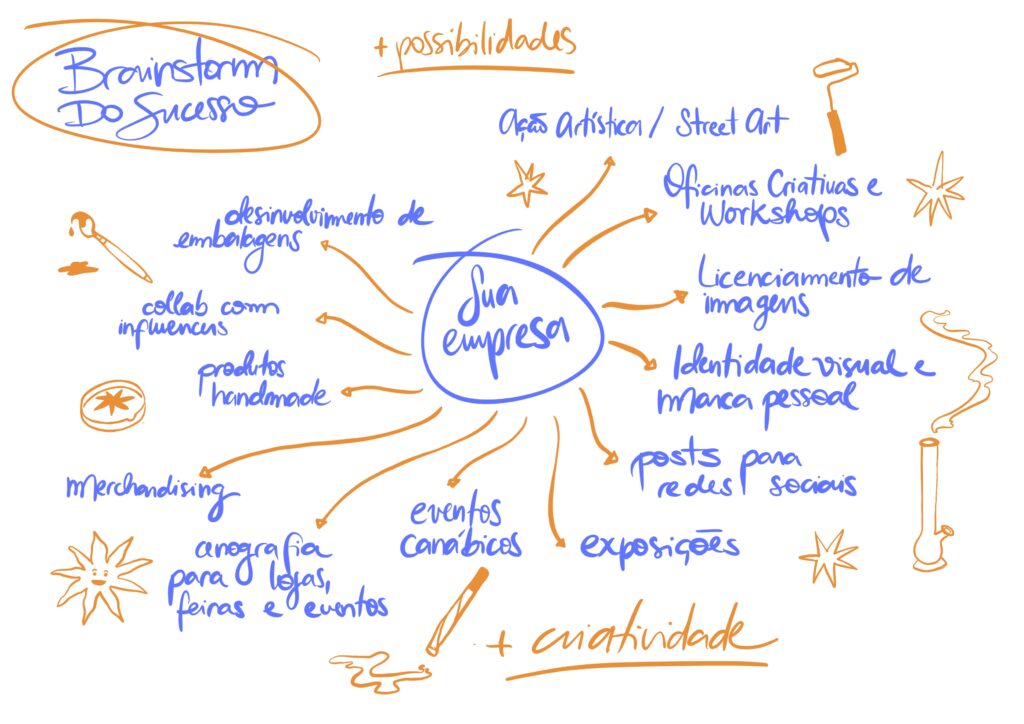 Brainstorm
Do Sucesso
+ possibilidades
Ação Artística / Street Art
Oficinas Criativas e
Workshops
Licenciamento de
imagens
Identidade visual e
marca pessoal
posts para
redes sociais
exposições
eventos
canábicos
cenografia
para lojas,
feiras e eventos
merchandising
produtos
handmade
collab com
influencers
desinvolvimento de
embalagens
Sua
empresa
+ criatividade